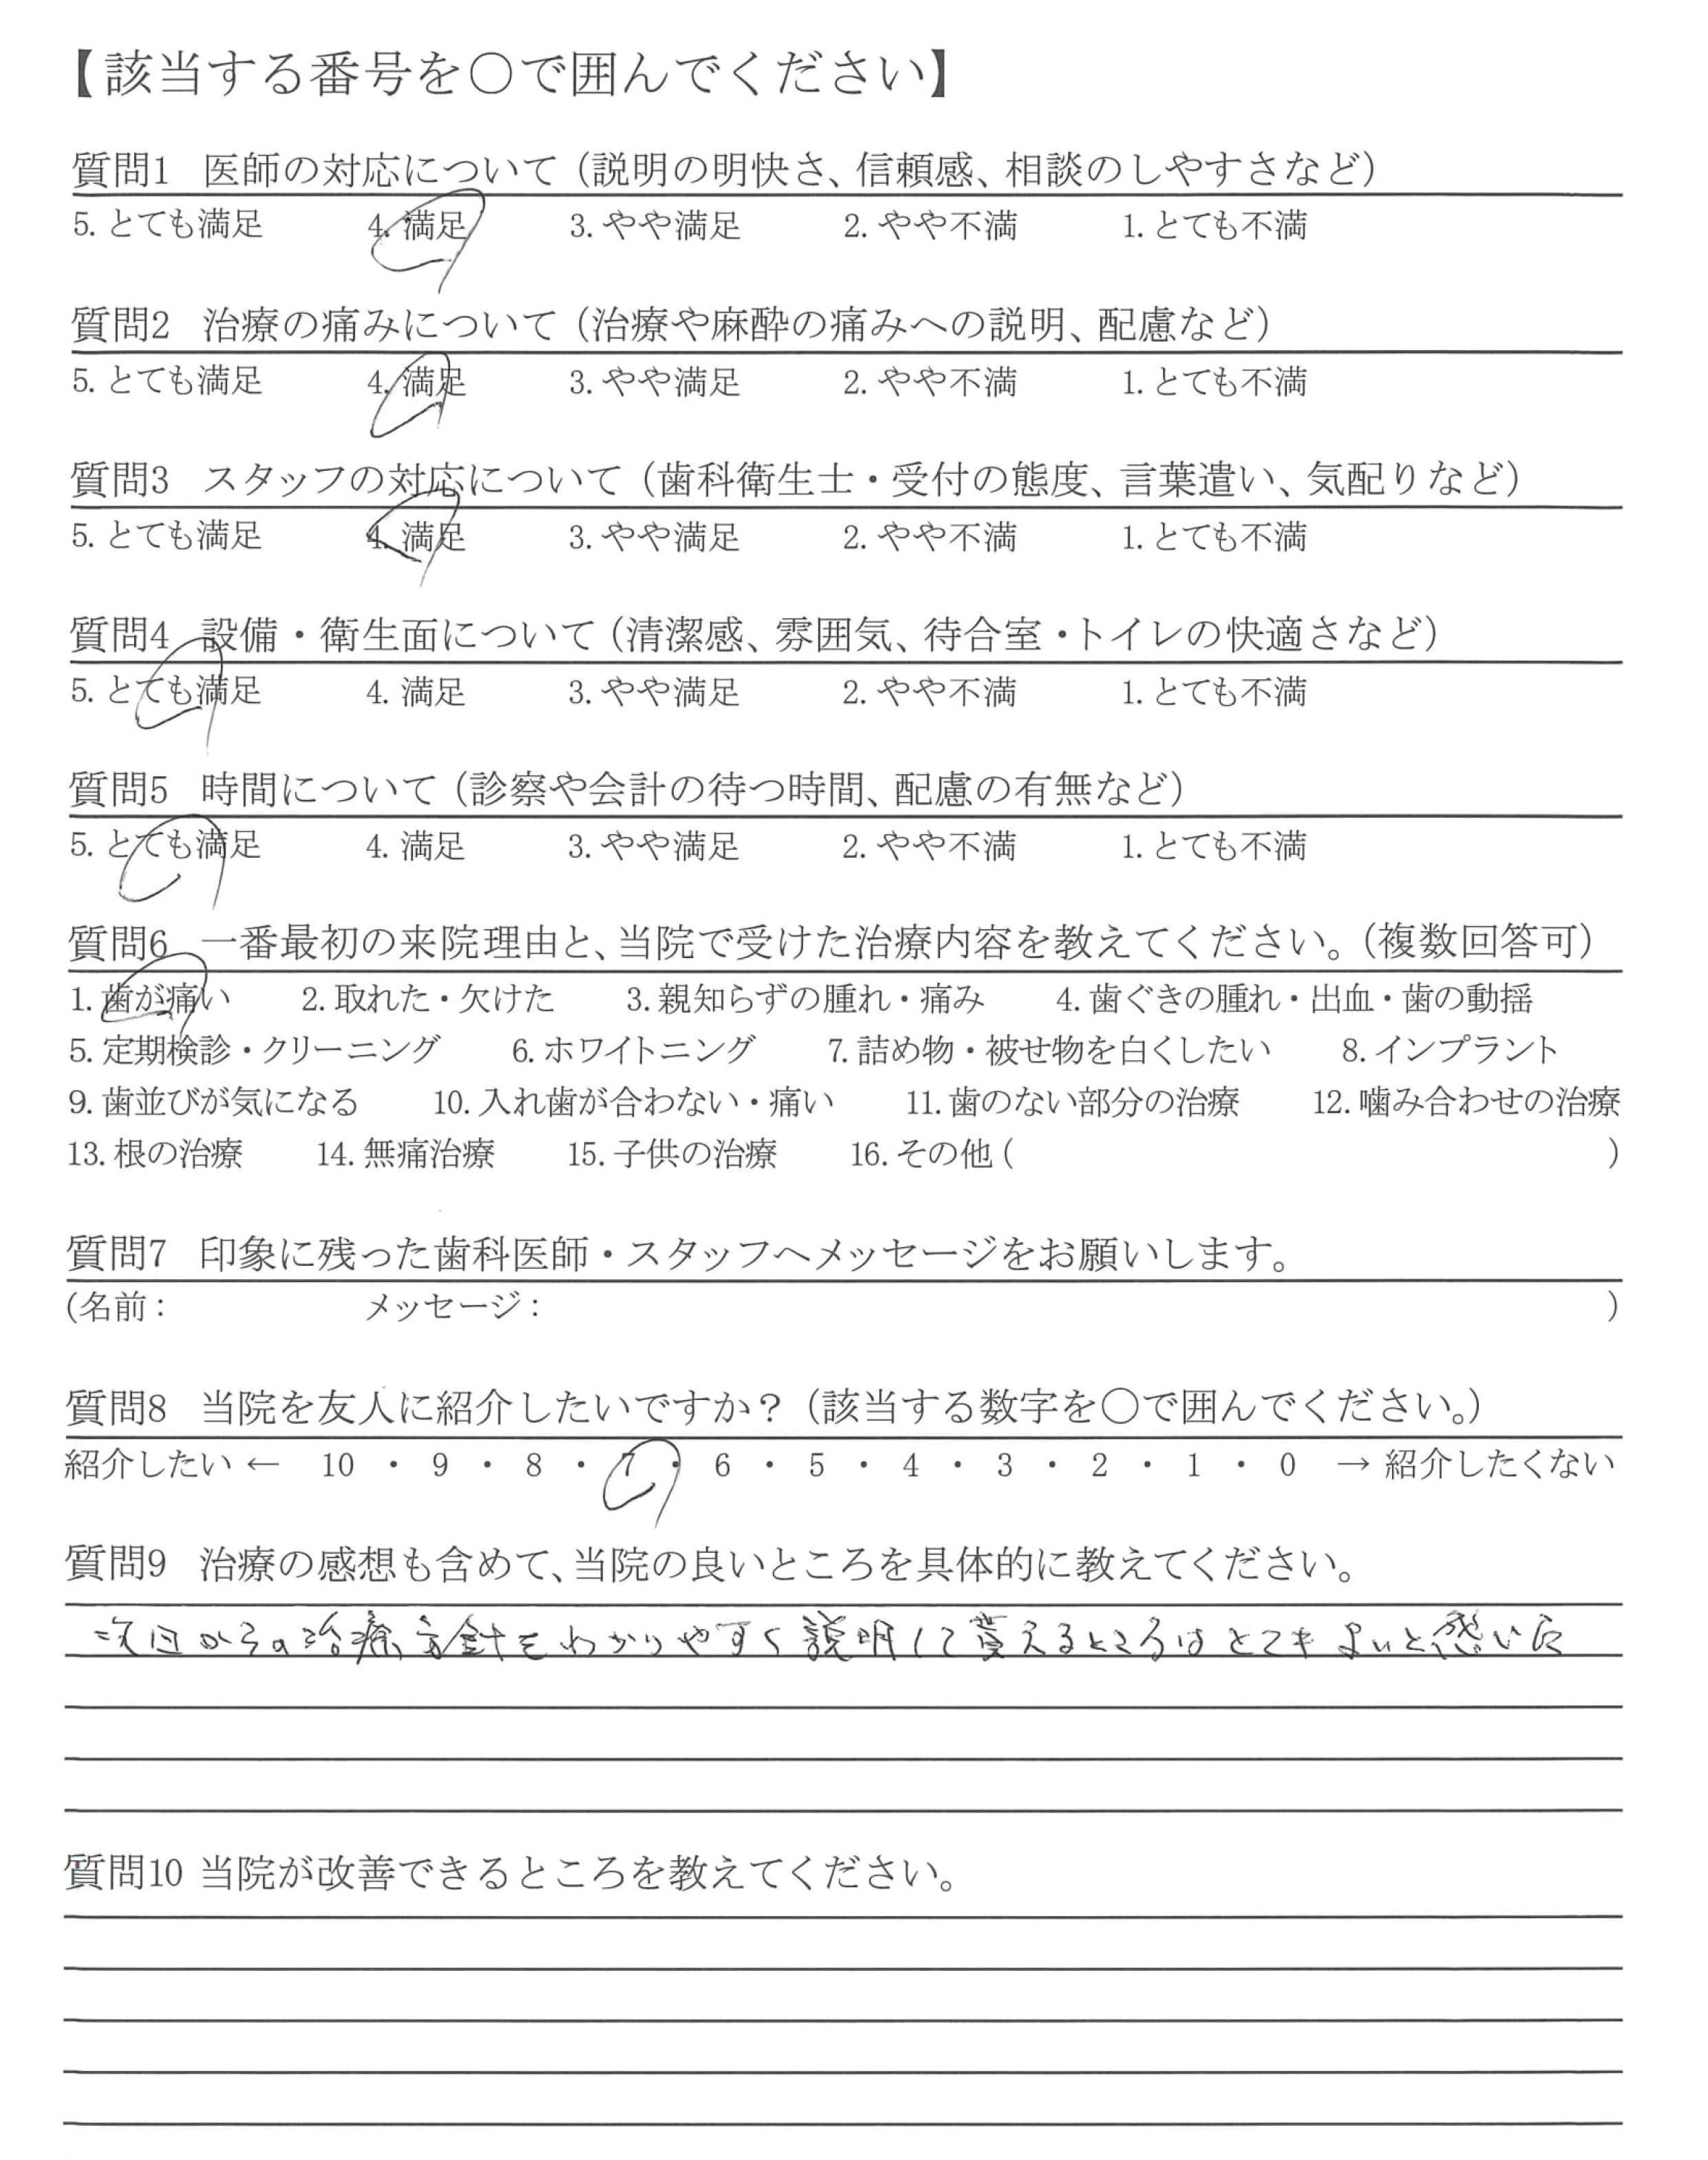 【該当する番号を〇で囲んでください】
質問1 医師の対応について（説明の明快さ、信頼感、相談のしやすさなど）
5. とても満足 4. 満足 3. やや満足 2. やや不満 1. とても不満
質問2 治療の痛みについて（治療や麻酔の痛みへの説明、配慮など）
5. とても満足 4. 満足 3. やや満足 2. やや不満 1. とても不満
質問3 スタッフの対応について（歯科衛生士・受付の態度、言葉遣い、気配りなど）
5. とても満足 4. 満足 3. やや満足 2. やや不満 1. とても不満
質問4 設備・衛生面について（清潔感、雰囲気、待合室・トイレの快適さなど）
5. とても満足 4. 満足 3. やや満足 2. やや不満 1. とても不満
質問5 時間について（診察や会計の待つ時間、配慮の有無など）
5. とても満足 4. 満足 3. やや満足 2. やや不満 1. とても不満
質問6 一番最初の来院理由と、当院で受けた治療内容を教えてください。（複数回答可）
1. 歯が痛い 2. 取れた・欠けた 3. 親知らずの腫れ・痛み 4. 歯ぐきの腫れ・出血・歯の動揺
5. 定期検診・クリーニング 6. ホワイトニング 7. 詰め物・被せ物を白くしたい 8. インプラント
9. 歯並びが気になる 10. 入れ歯が合わない・痛い 11. 歯のない部分の治療 12. 噛み合わせの治療
13. 根の治療 14. 無痛治療 15. 子供の治療 16. その他 ( )
質問7 印象に残った歯科医師・スタッフへメッセージをお願いします。
(名前： メッセージ： )
質問8 当院を友人に紹介したいですか？（該当する数字を〇で囲んでください。）
紹介したい ← 10 ・ 9 ・ 8 ・ 7 ・ 6 ・ 5 ・ 4 ・ 3 ・ 2 ・ 1 ・ 0 → 紹介したくない
質問9 治療の感想も含めて、当院の良いところを具体的に教えてください。
次回からの治療方針をわかりやすく説明して貰えるところはとてもよいと感いた
質問10 当院が改善できるところを教えてください。